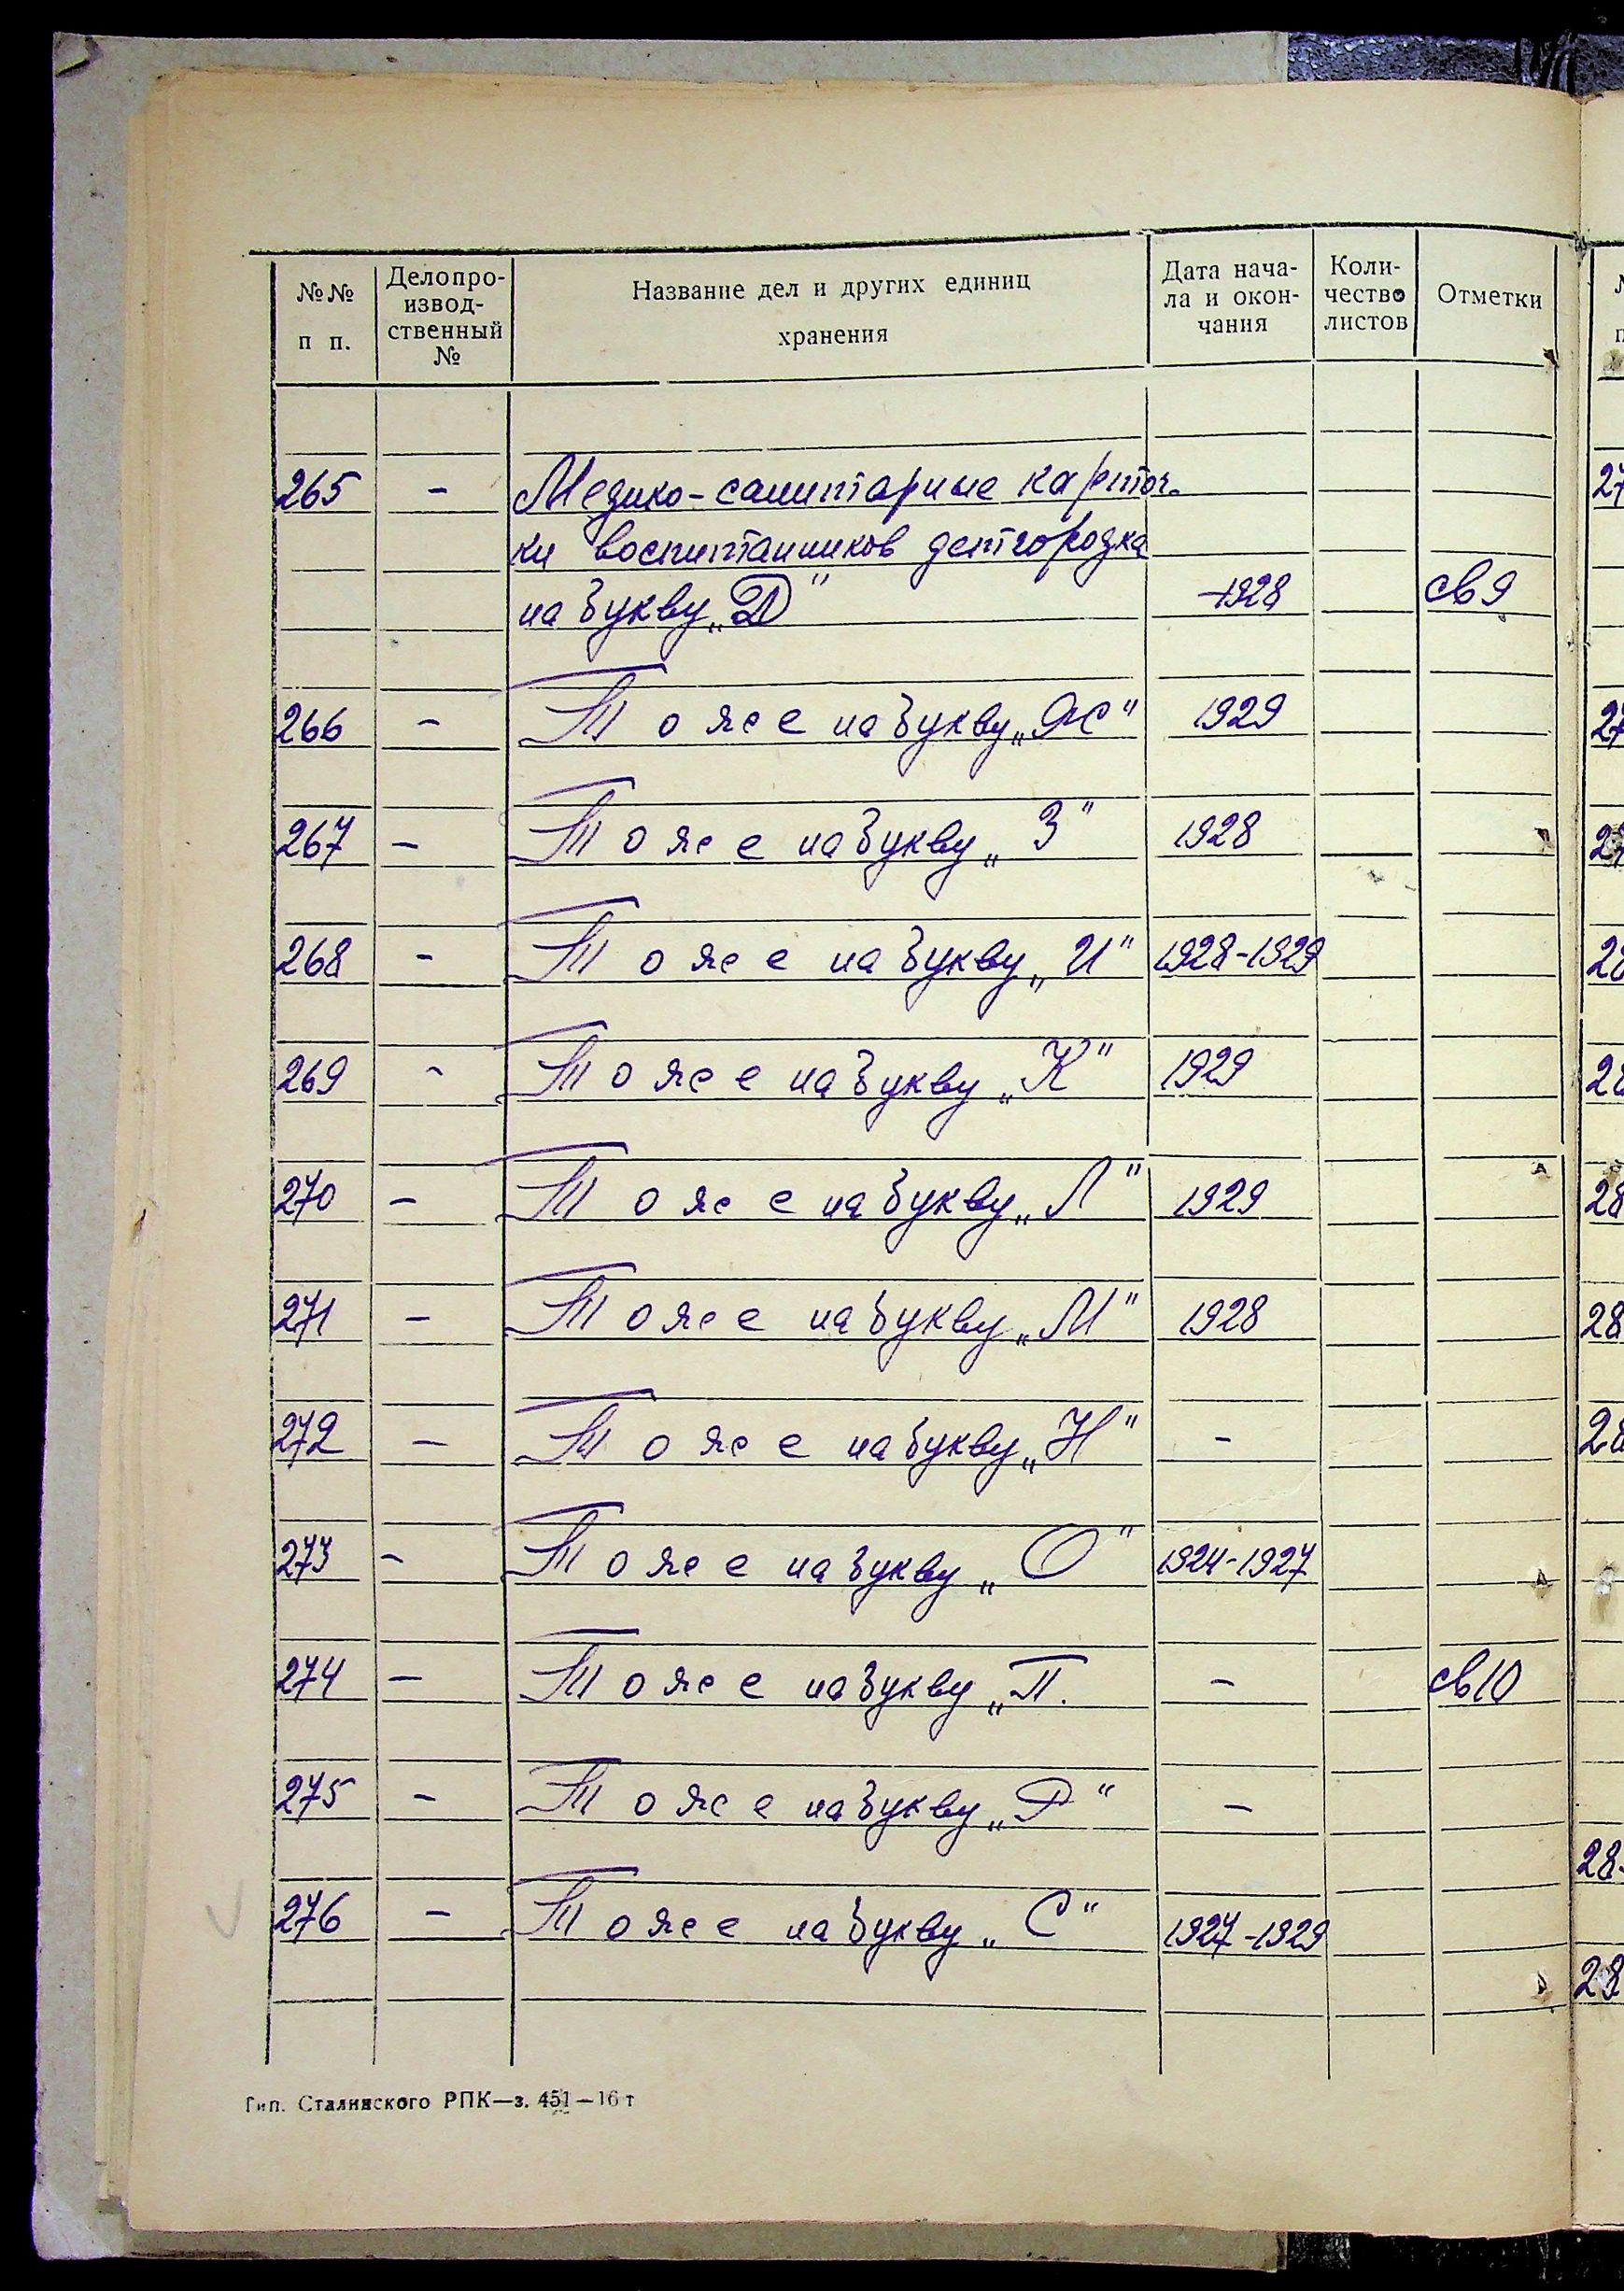 №№ п п.
Делопро-
извод-
ственный
№
Название дел и других единиц
хранения
Дата нача-
ла и окон-
чания
Коли-
чество
листов
Отметки
265 - Медико-санитарные карточ-
ки воспитанников детгородка
на букву „Д" -1928 св 9
266 - То же на букву „Ж" 1929
267 - То же на букву „З" 1928
268 - То же на букву „И" 1928-1929
269 - То же на букву „К" 1929
270 - То же на букву „Л" 1929
271 - То же на букву „М" 1928
272 - То же на букву „Н" -
273 - То же на букву „О" 1924-1927
274 - То же на букву „П. - св 10
275 - То же на букву „Р" -
276 - То же на букву „С" 1927-1929
Тип. Сталинского РПК—з. 451—16 т